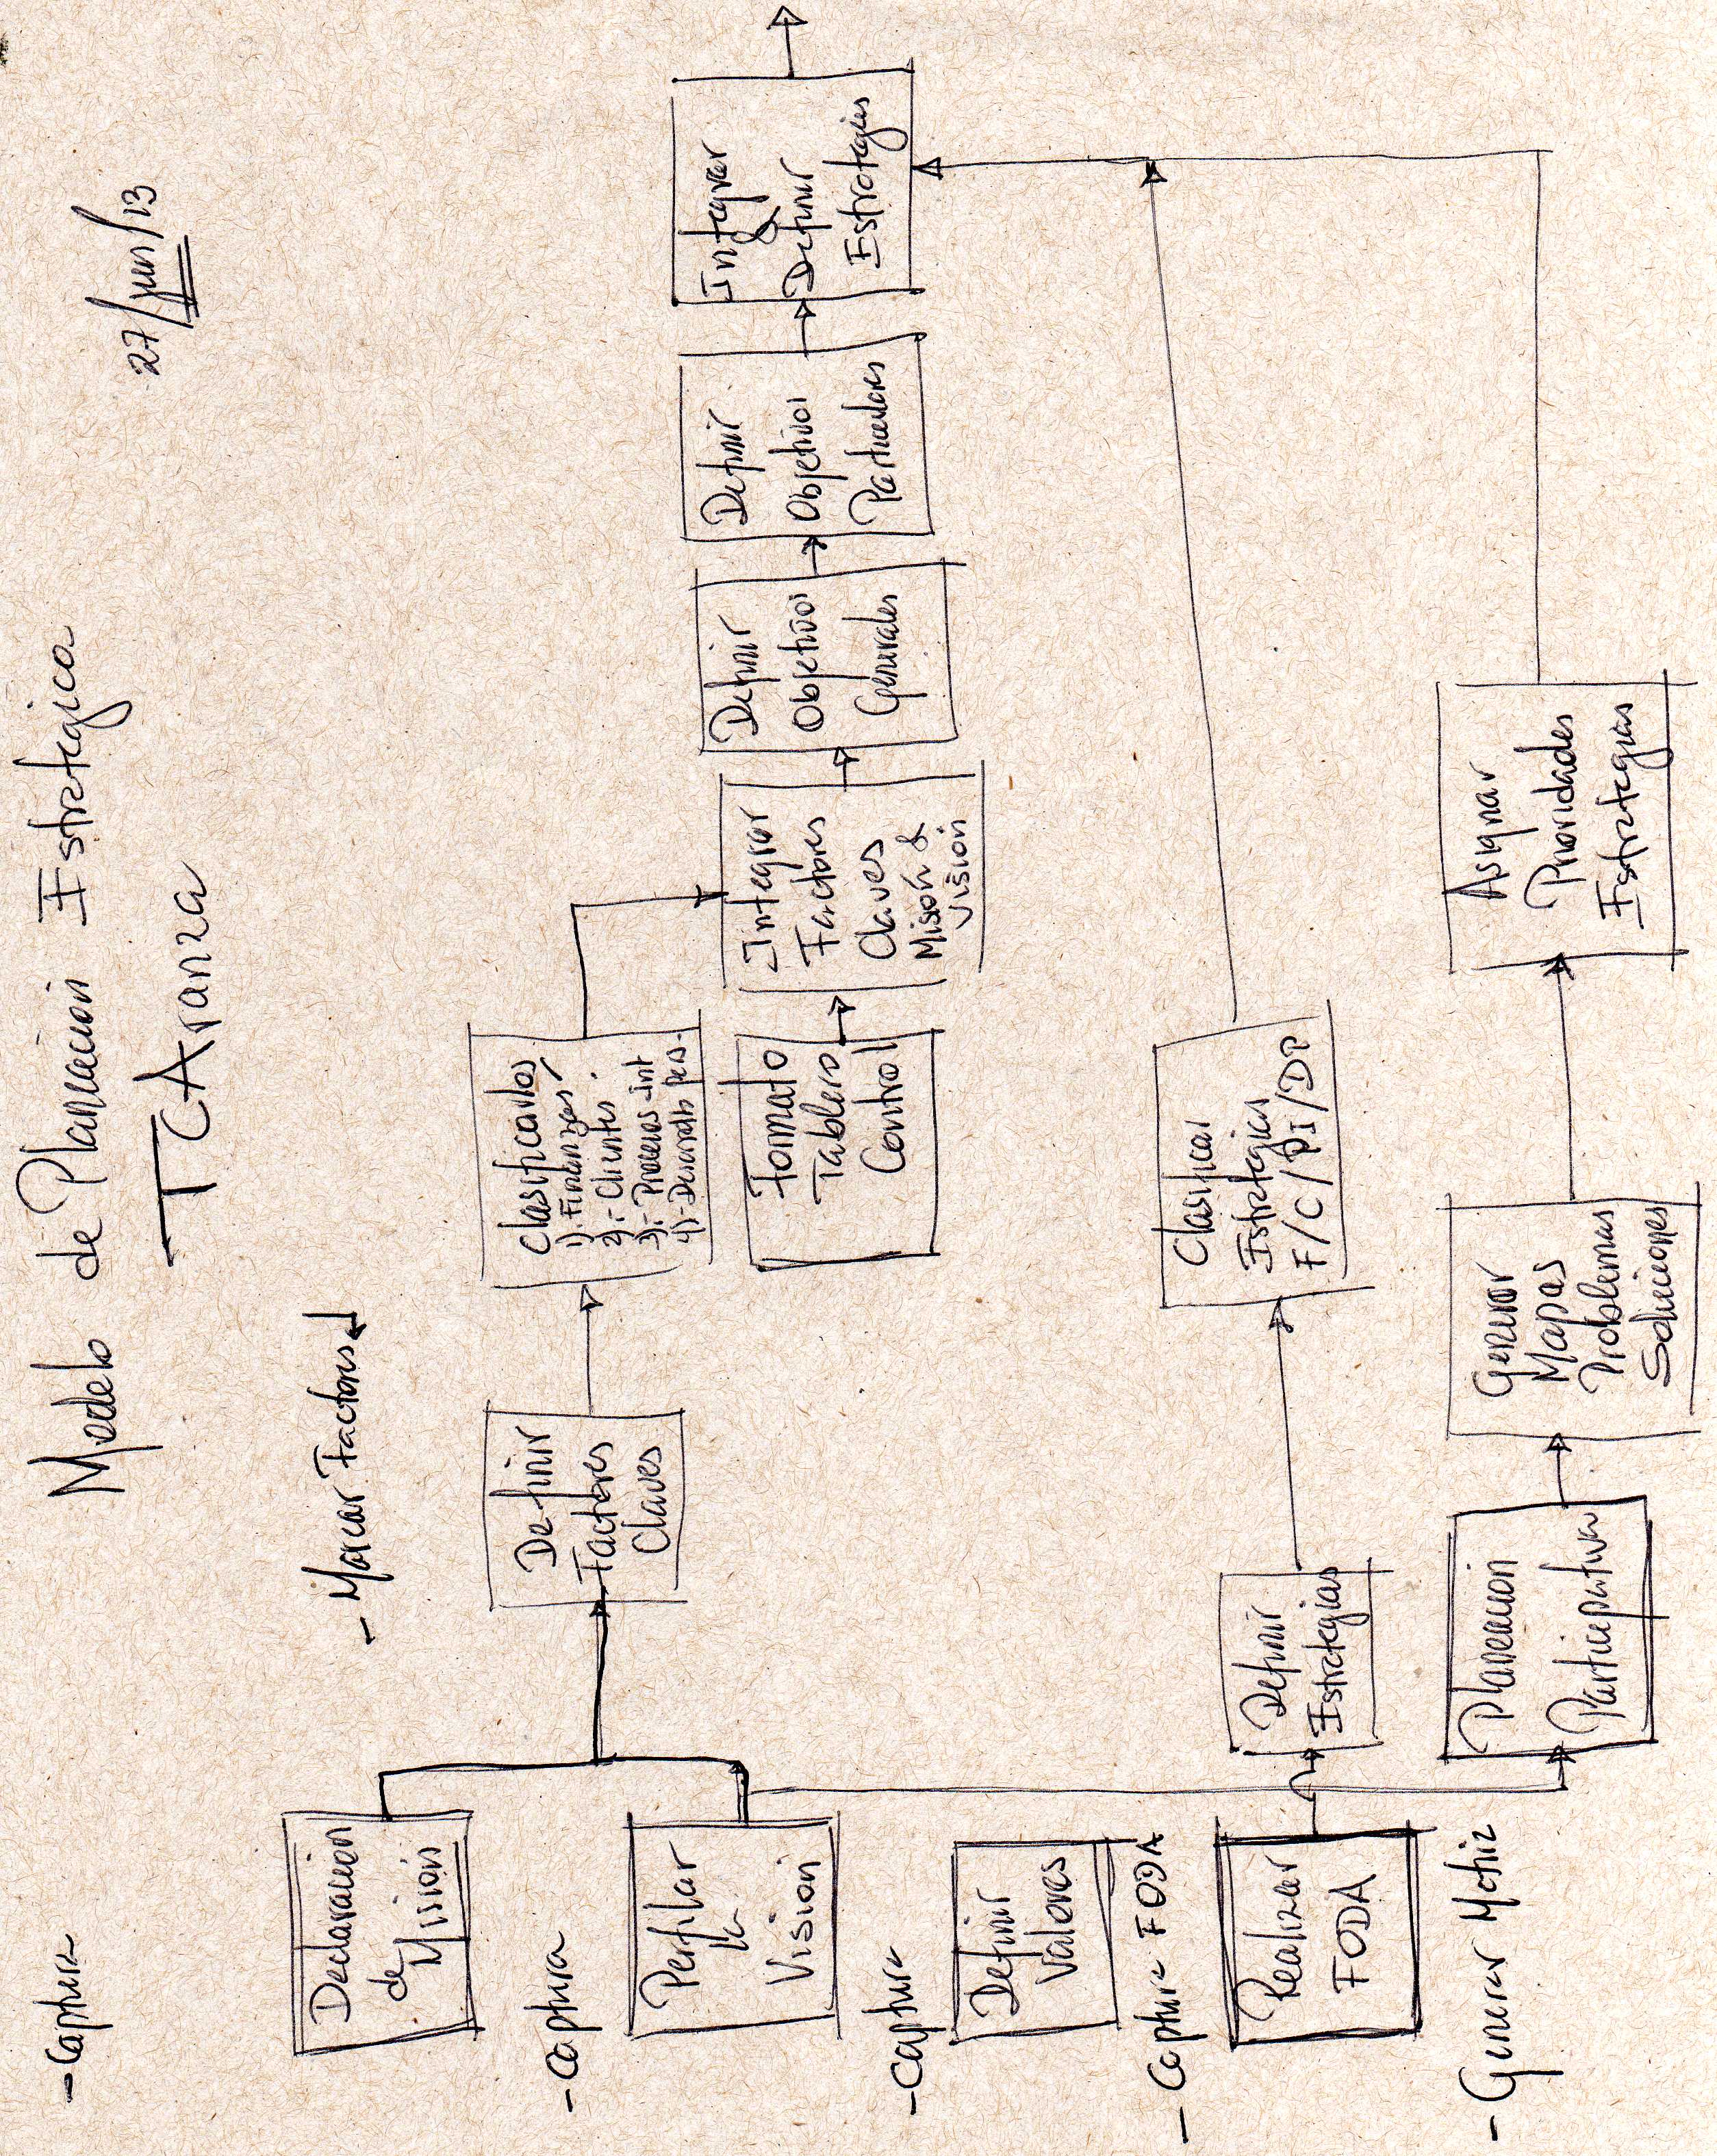 Modelo de Planeación Estrategica
TCAranza
27/jun/13
- Captura
- Marcar Factores
Declaracion
de
Misión
- Captura
Perfilar
la
Visión
- Captura
Definir
Valores
- Captura FODA
Realizar
FODA
- Generar Matriz
Definir
Factores
Claves
Clasificarlos
1).- Finanzas
2).- Clientes
3).- Procesos int
4).- Desarrollo Pers.
Formato
Tablero
Control
Integrar
Factores
Claves
Misión &
Visión
Definir
Objetivos
Generales
Definir
Objetivos
Particulares
Integrar
&
Definir
Estrategias
Definir
Estrategias
Clasificar
Estrategias
F/C/PI/DP
Planeacion
Participativa
Generar
Mapas
Problemas
Soluciones
Asignar
Prioridades
Estrategias